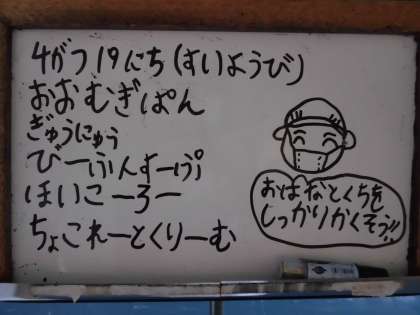 4がつ19にち(すいようび)
おおむぎぱん
ぎゅうにゅう
びーふんすーぷ
ほいこーろー
ちょこれーとくりーむ
おはなとくちを
しっかりかくそう!!